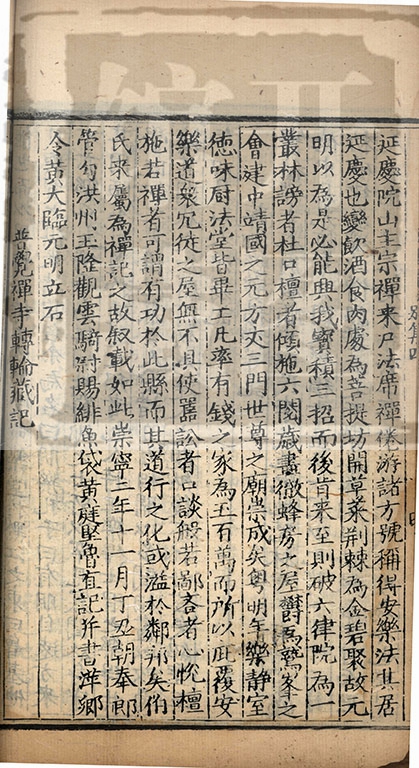 延慶院山主宗禪来尸法席禪倦游諸方號稱得安樂法其居
延慶也變飲酒食肉處為菩提坊開草萊荆棘為金碧聚故元
明以為是必能興我寶積三招而後肯来至則破六律院為一
叢林謗者杜口檀者傾施六閱歲盡徹蜂房之居欝為鷲峯之
會建中靖國之元方丈三門世尊之廟崇成矣粤明年樂静室
徳味厨法堂皆畢工凡率有錢之家為五百萬而所以庇覆安
樂道衆冗從之屋無不具使囂訟者口談般若鄙吝者心恱檀
施若禪者可謂有功於此縣而其道行之化或溢於鄰邦矣伯
氏来屬為禪記之故叙載如此崇寧二年十一月丁丑朝奉郎
管勾洪州玉隆觀雲騎尉賜緋魚袋黄庭堅魯直記并書萍鄉
令黄大臨元明立石
普覺禪寺轉輪藏記